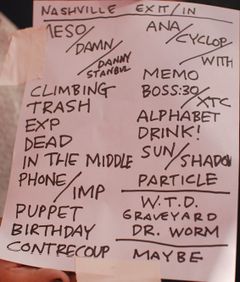 NASHVILLE EXIT/IN
MESO/DAMN/DANNY
STANBUL
CLIMBING
TRASH
EXP
DEAD
IN THE MIDDLE
PHONE/IMP
PUPPET
BIRTHDAY
CONTRECOUP
ANA/CYCLOP/WITH
MEMO
BOSS:30/XTC
ALPHABET
DRINK!
SUN/SHADOW
PARTICLE
W.T.D.
GRAVEYARD
DR. WORM
MAYBE